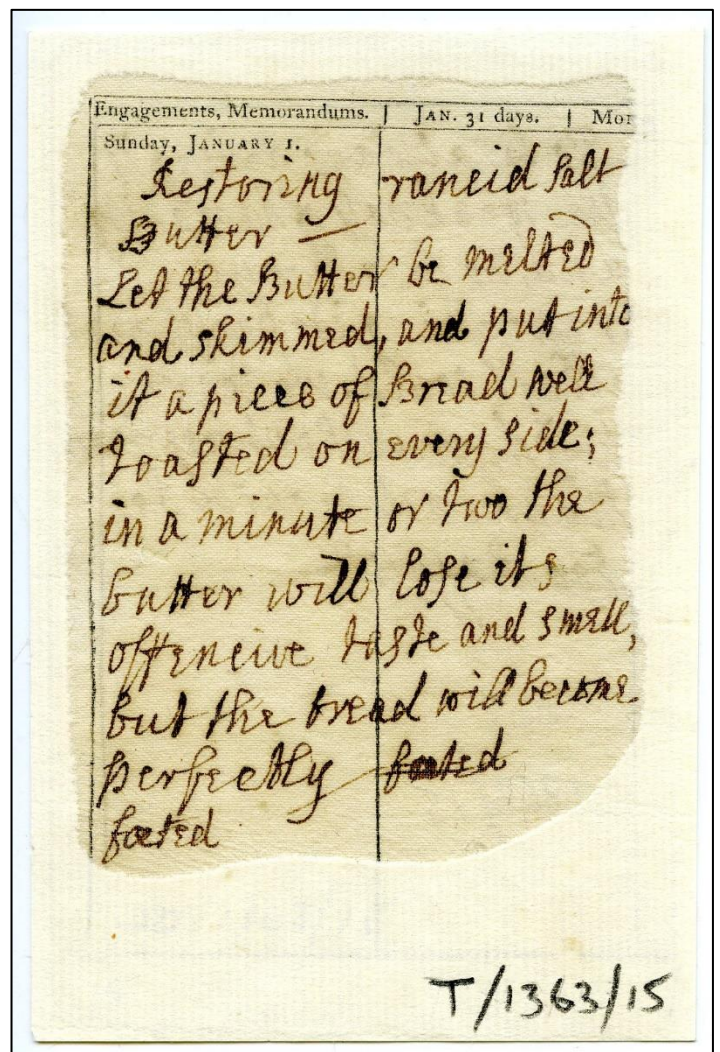 Engagements, Memorandums. | JAN. 31 days. | Mor
Sunday, JANUARY 1.
Restoring rancid Salt
Butter —
Let the Butter be melted
and skimmed, and put into
it a piece of Bread well
toasted on every side;
in a minute or two the
butter will lose its
offencive taste and smell,
but the bread will become
perfectly foeted
foeted
T/1363/15